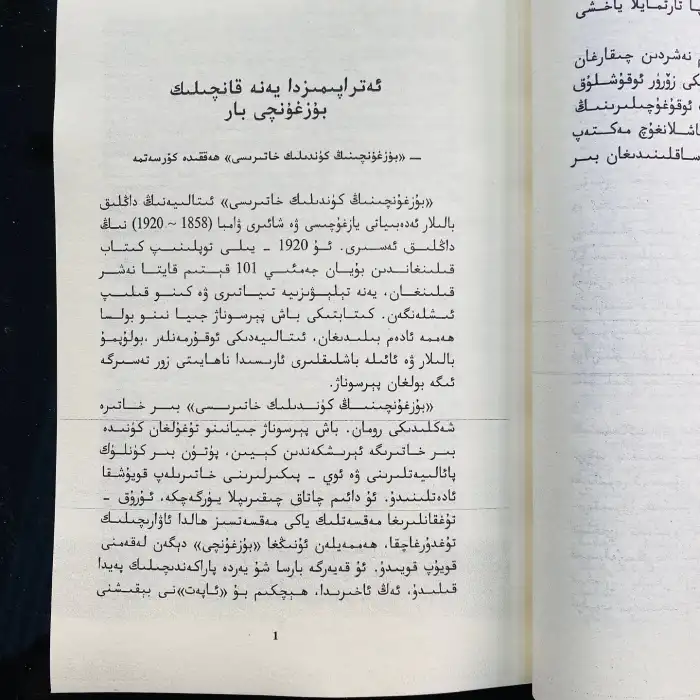 ئەتراپىمىزدا يەنە قانچىلىك
بۇزغۇنچى بار
— «بۇزغۇنچىنىڭ كۈندىلىك خاتىرىسى» ھەققىدە كۆرسەتمە
«بۇزغۇنچىنىڭ كۈندىلىك خاتىرىسى» ئىتالىيەنىڭ داڭلىق
باللار ئەدەبىياتى يازغۇچىسى ۋە شائىرى ۋامبا (1858 ~ 1920) نىڭ
داڭلىق ئەسىرى. ئۇ 1920 - يىلى توپلىنىپ كىتاب
قىلىنغاندىن بۇيان جەمئىي 101 قېتىم قايتا نەشر
قىلىنغان، يەنە تېلېۋىزىيە تىياتىرى ۋە كىنو قىلىپ
ئىشلەنگەن. كىتابتىكى باش پېرسوناژ جىيا نىنو بولسا
ھەممە ئادەم بىلىدىغان، ئىتالىيەدىكى ئوقۇرمەنلەر ،بولۇپمۇ
باللار ۋە ئائىلە باشلىقلىرى ئارىسىدا ناھايىتى زور تەسىرگە
ئىگە بولغان پېرسوناژ.
«بۇزغۇنچىنىڭ كۈندىلىك خاتىرىسى» بىر خاتىرە
شەكلىدىكى رومان. باش پېرسوناژ جىيانىنو تۇغۇلغان كۈنىدە
بىر خاتىرىگە ئېرىشكەندىن كېيىن، پۈتۈن بىر كۈنلۈك
پائالىيەتلىرىنى ۋە ئوي - پىكىرلىرىنى خاتىرىلەپ قويۇشقا
ئادەتلىنىدۇ. ئۇ دائىم چاتاق چىقىرىپلا يۈرگەچكە، ئۇرۇق -
تۇغقانلىرىغا مەقسەتلىك ياكى مەقسەتسىز ھالدا ئاۋارىچىلىك
تۇغدۇرغاچقا، ھەممەيلەن ئۇنىڭغا «بۇزغۇنچى» دېگەن لەقەمنى
قويۇپ قويىدۇ. ئۇ قەيەرگە بارسا شۇ يەردە پاراكەندىچىلىك پەيدا
قىلىدۇ، ئەڭ ئاخىرىدا، ھېچكىم بۇ «ئاپەت»نى بېقىشنى
1
تارتمايلا ياخشى
نەشردىن چىقارغان
زۆرۈر ئوقۇشلۇق
ئوقۇغۇچىلىرىنىڭ
مەكتەپ
ساقلىنىدىغان بىر